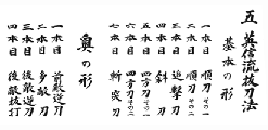 五 英信流抜刀法
基本の形
一本目 順刀 その一
二本目 順刀 その二
三本目 追撃刀
四本目 斜刀
五本目 四方刀 その一
六本目 四方刀 その二
七本目 斬突刀
奥の形
一本目 前敵逆刀
二本目 多敵刀
三本目 後敵逆刀
四本目 後敵抜打